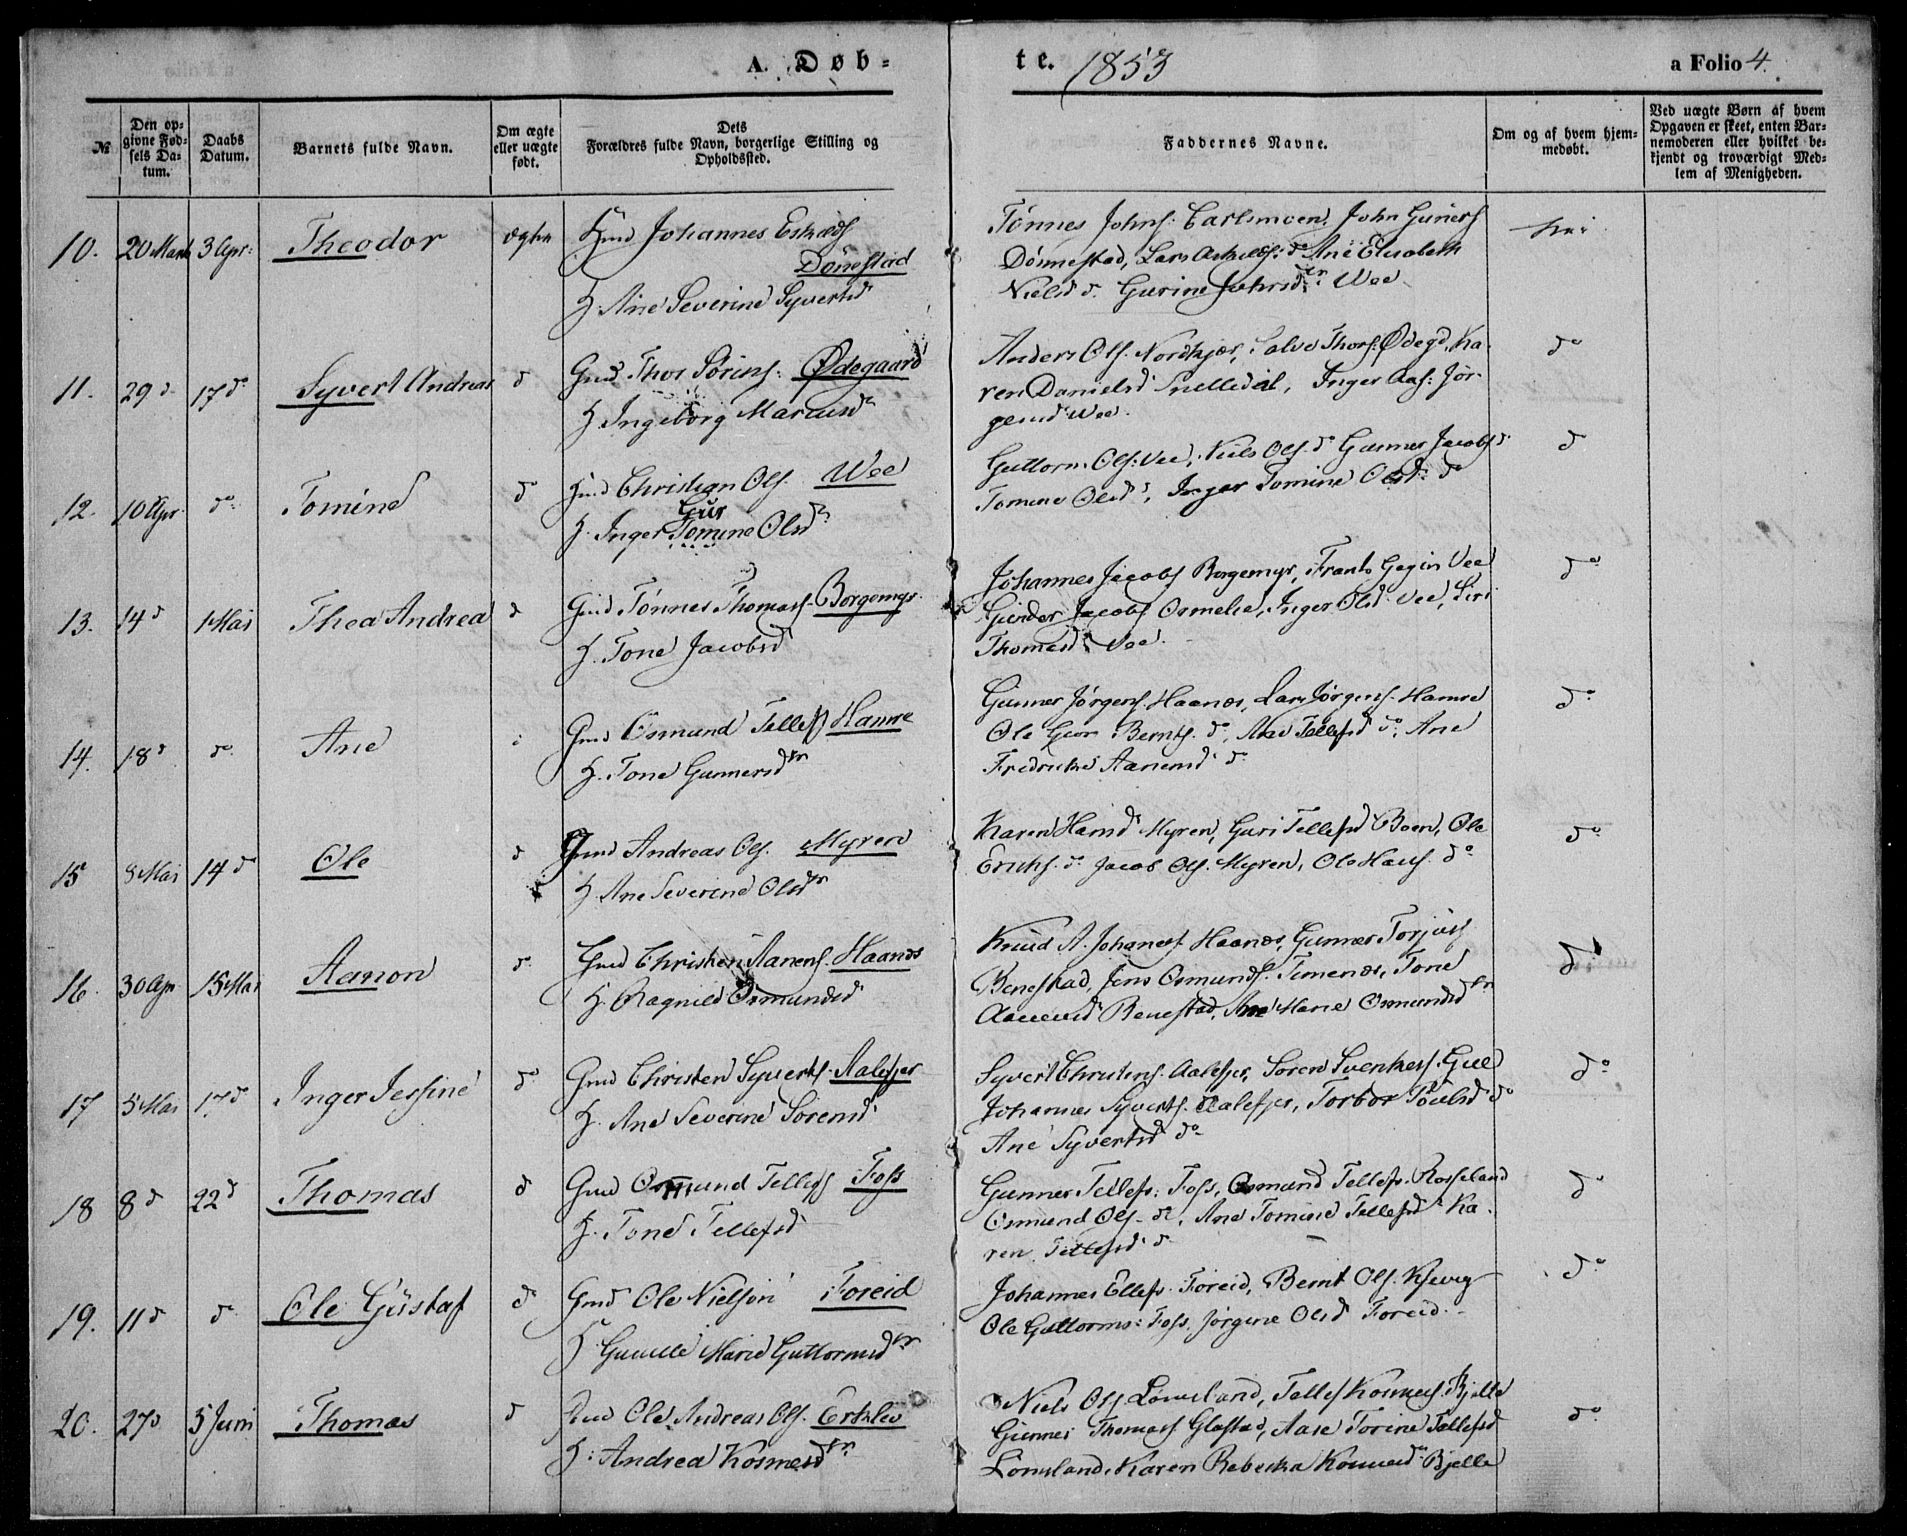 A. Døb-
te. 1853
a Folio 4.
№
Den opgivne Fødsels Datum.
Daabs Datum.
Barnets fulde Navn.
Om ægte eller uægte født.
Dets Forældres fulde Navn, borgerlige Stilling og Opholdssted.
Faddernes Navne.
Om og af hvem hjemmedøbt.
Ved uægte Børn af hvem Opgaven er skeet, enten Barnemoderen eller hvilket bekjendt og troværdigt Medlem af Menigheden.
10. 20 Marts 3 Apr: Theodor ægte Gmd Johannes
Dønestad
H. Ane Severine Syvertsd
Tønnes Johns: Carlsmoen, John Guners
Dønnestad, Lars do Ane Elisabeth
Nielsd do. Gurine Johnsd Wee
nei
11. 29 d. 17 do Syvert Andreas d Gmd Thor Sørens: Ødegaard
H. Ingeborg Marcusd
Anders Ols. Nordkjær, Salve Thors: Ødegd, Ka-
ren Danielsd Snelledal, Inger Aas: Jør-
gensd Wee.
do
12. 10 Apr. do Tomine do Gmd Christian Ols. Wee
Gur
H. Inger Tomine Olsd
Guttorm Ols: Vee, Niels Ols. do Gunner Jacobs d.
Tomine Olsd, Inger Tomine Olsd: do
d
13. 14 d 1 Mai Thea Andrea d Gmd Tønnes Thomass. Borgemyr
H. Tone Jacobsd
Johannes Jacobs Borgemyr, Frants Vee
Gunder Jacobs Osmelie, Inger Olsd Vee, Siri
Thomasd Vee.
do
14. 18 d do Ane Gmd Osmund Tellefs Hamre
H. Tone Gunnersdtr
Gunner Jørgens. Haanes, Lars Jørgens. Hamre
Ole Geor Bernts. do, Ane Tellefsd do, Ane
Fredrikke Aanensd do
do
15 8 Mai 14 d Ole d Gmd Andreas Ols. Myren
H. Ane Severine Olsdtr
Karen Hansd Myren, Guri Tellefsd Boen, Ole
Erichs. do Jacob Ols. Myren, Ole Hans. do
do
16. 30 Apr 15 Mai Aanon d. Gmd Christen Aanens. Haanes
H. Ragnild Osmundsd
Knud A. Johaness Haanes, Gunner Torjus
Benestad, Jens Osmunds. Timenes, Tone
Aanensd Benestad, Ane Marie Osmundsdtr
do
17 5 Mai 17 d Inger Jessine do Gmd Christen Syverts. Aalefjer
H. Ane Severine Sørensd
Syvert Christens. Aalefjer, Søren Svenkes. Gill
Johannes Syverts. Aalefjer, Torbor Poulsd do
Ane Syvertsd do
do
18 8 d 22 d Thomas d Gmd Osmund Tellefs Foss
H. Tone Tellefsd
Gunner Tellefs: Foss, Osmund Tellefs. Rosseland
Osmund Ols. do, Ane Tomine Tellefsd Ka-
ren Tellefsd d
do
19. 11 d d Ole Gustaf d Gmd Ole Nielsen Foreid
H. Gunille Marie Guttormsdtr
Johannes Ellefs. Foreid, Bernt Ols. Kjevig
Ole Guttorms: Foss, Jørgine Olsd Foreid.
do
20. 27 d 5 Juni Thomas d Gmd Ole Andreas Ols. Erkleiv
H: Andrea Kosmesdtr
Niels Ols Lømsland, Tellef Kosmes. Bjelle
Gunner Thomass Glastad, Aase Torine Tellefsd
Lømsland, Karen Rebekka Kosmesd Bjelle
do